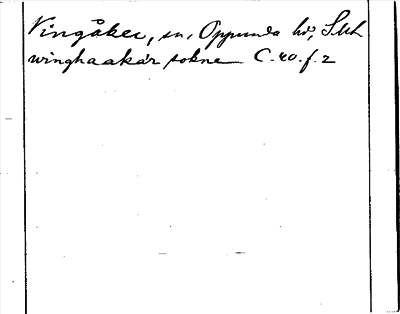 Vingåker, sn, Oppunda hd, Stlh
winghaakär sokne C. 40. f. 2